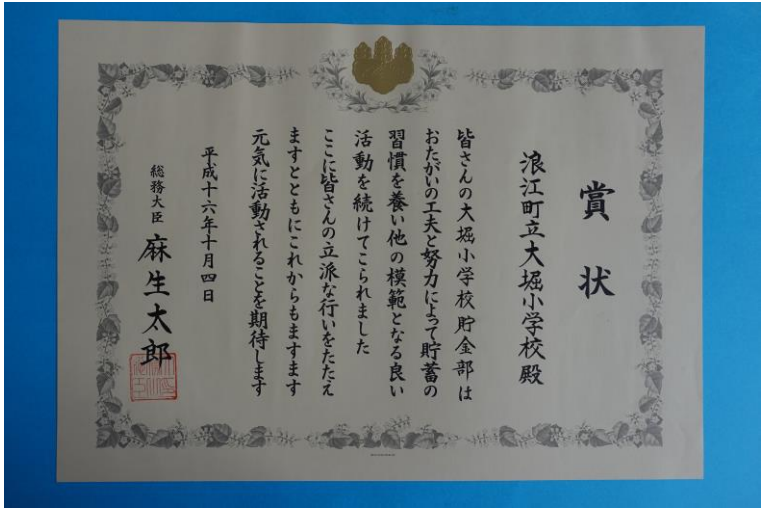 賞状
浪江町立大堀小学校殿
皆さんの大堀小学校貯金部は
おたがいの工夫と努力によって貯蓄の
習慣を養い他の模範となる良い
活動を続けてこられました
ここに皆さんの立派な行いをたたえ
ますとともにこれからもますます
元気に活動されることを期待します
平成十六年十月四日
総務大臣 麻生太郎